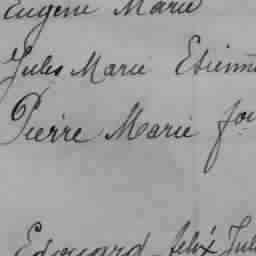 Eugene Marie
Jules Marie Etienne
Pierre Marie
Edouard felix Jul